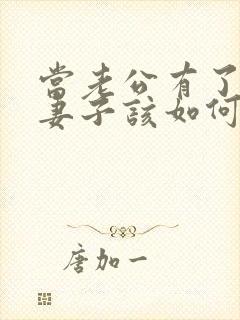 當老公有了
妻子該如何
唐加一